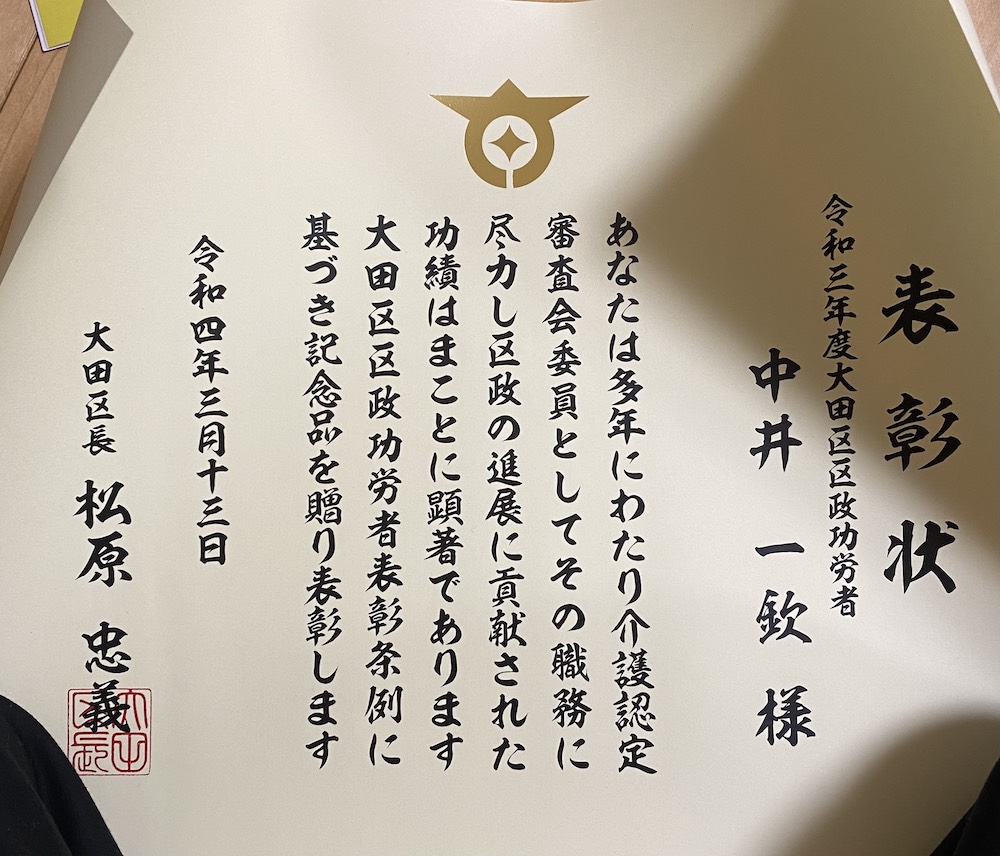 表彰状
令和三年度大田区区政功労者
中井 一欽 様
あなたは多年にわたり介護認定
審査会委員としてその職務に
尽力し区政の進展に貢献された
功績はまことに顕著であります
大田区区政功労者表彰条例に
基づき記念品を贈り表彰します
令和四年三月十三日
大田区長 松原 忠義